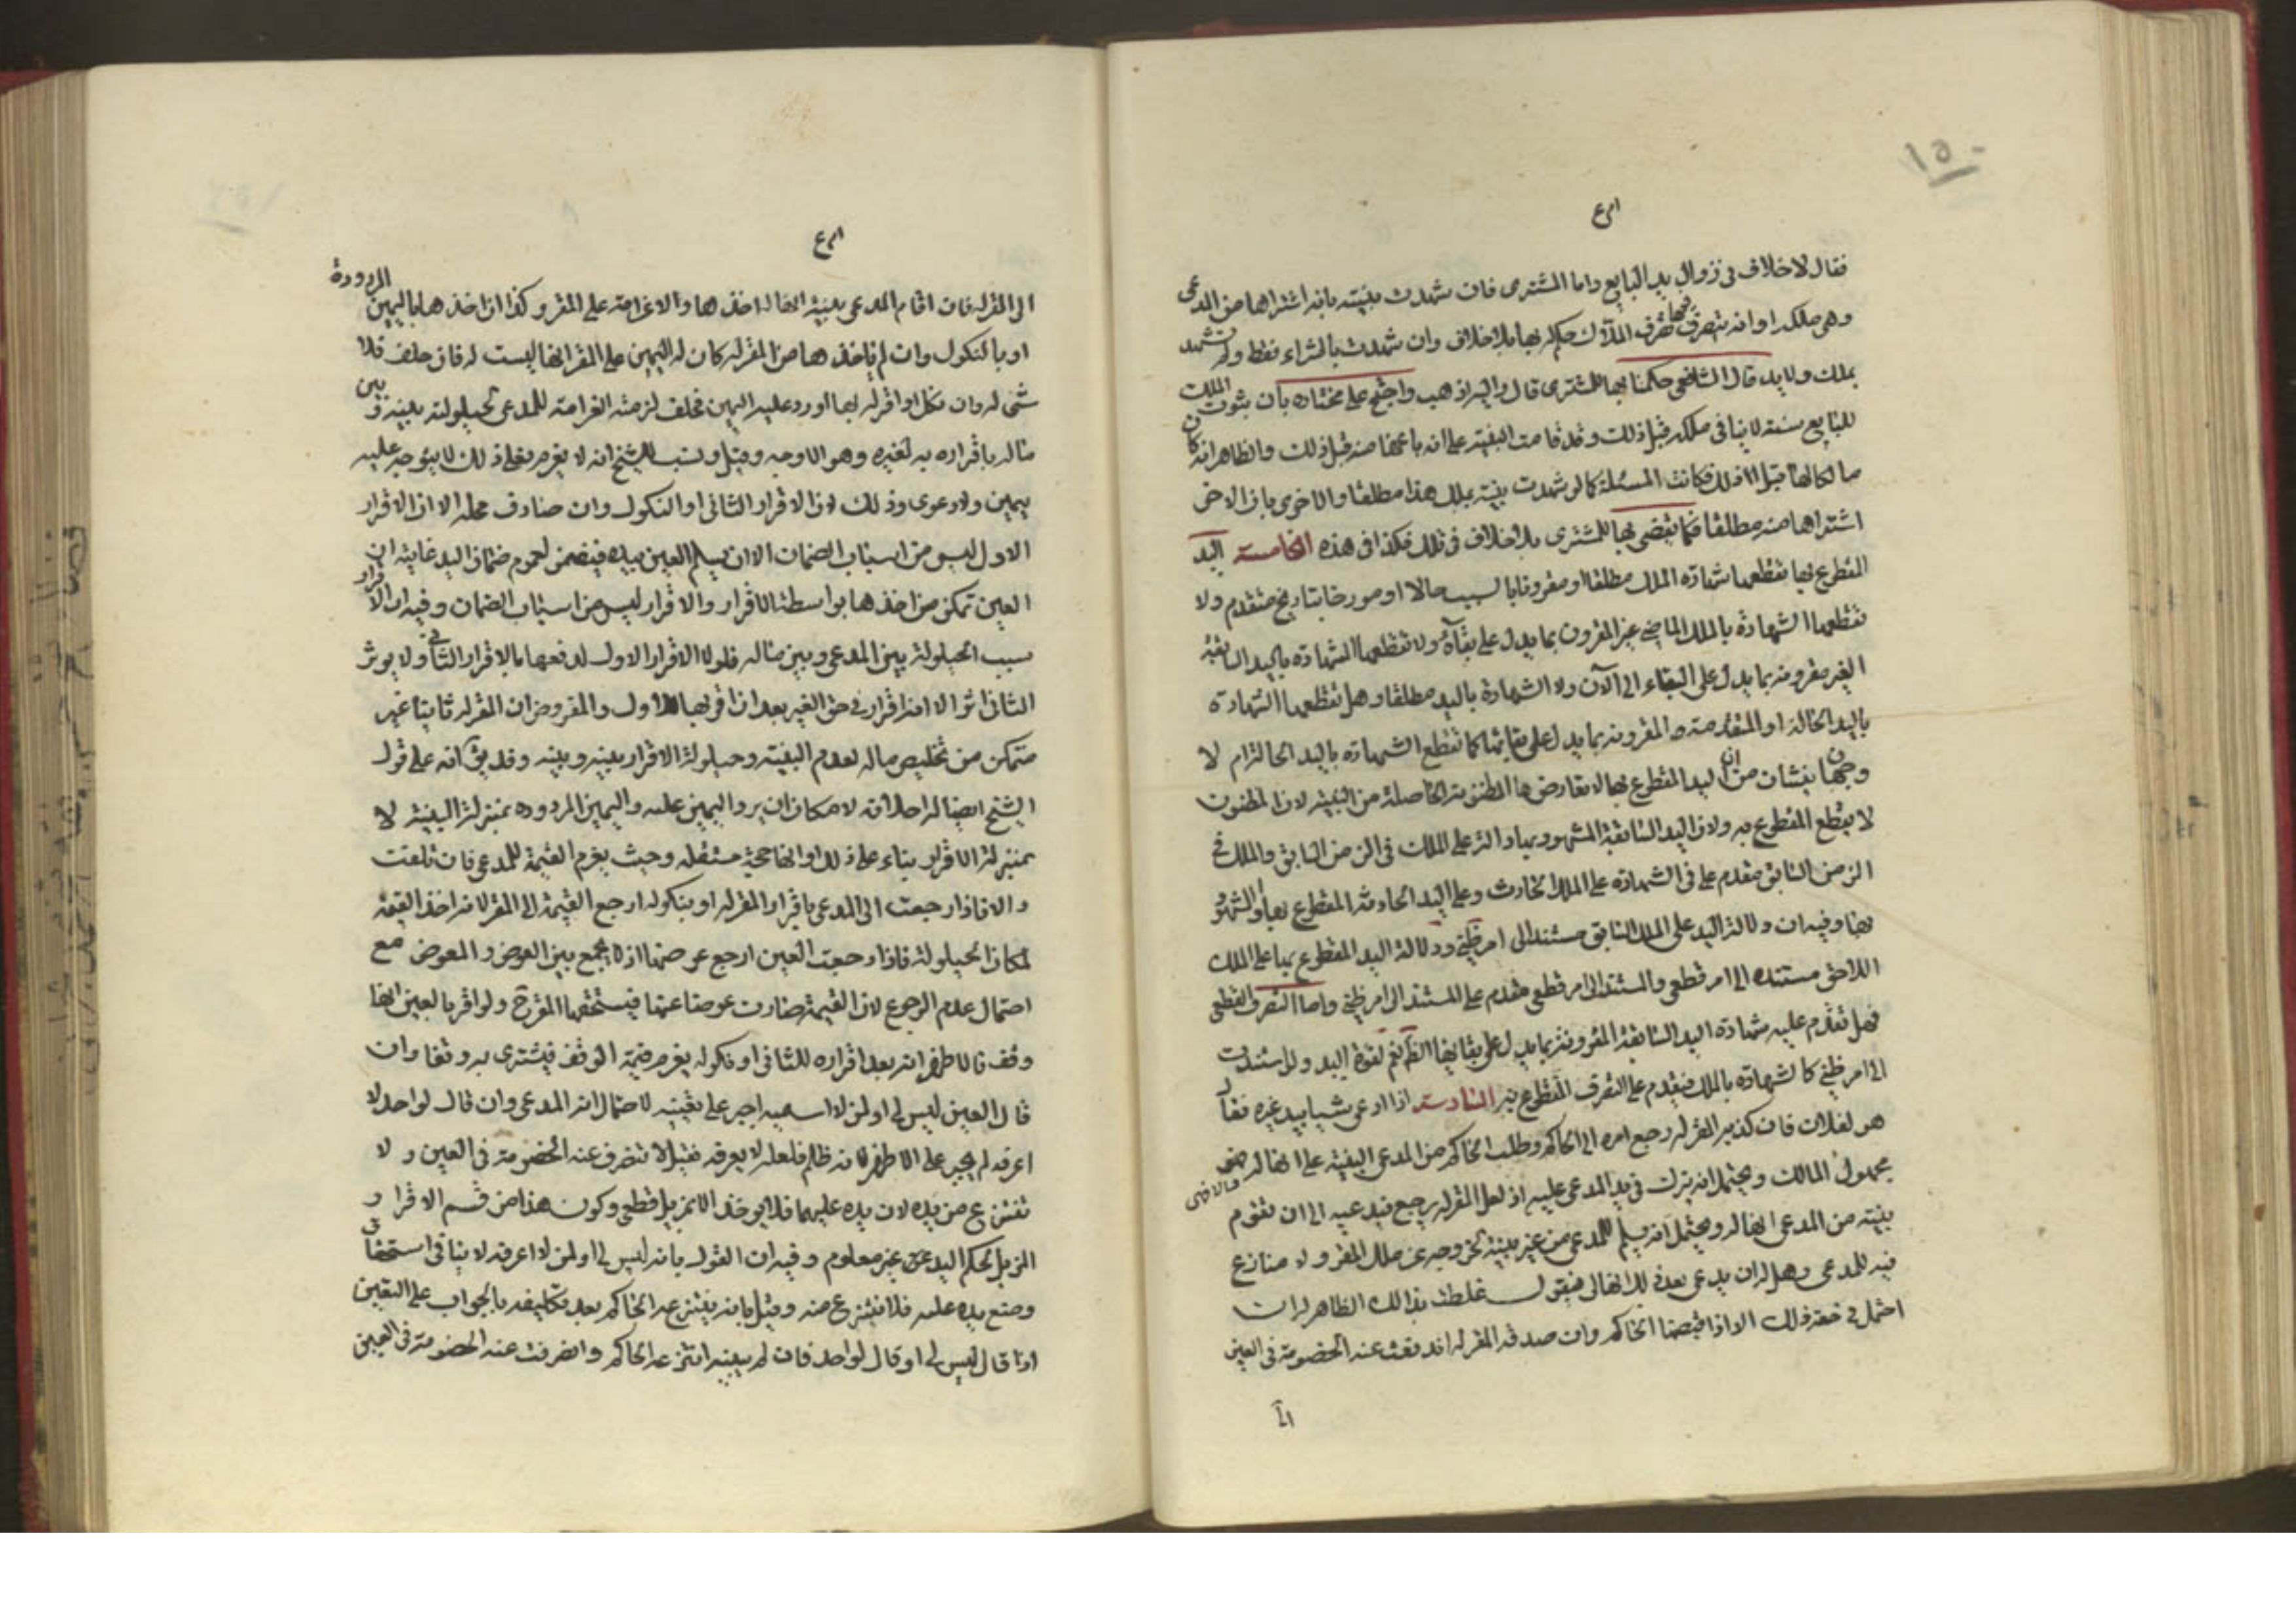 ١٥٠
فقال لا خلاف فى زوال يد البايع واما المشترى فان شهدت بينته بانه اشتراها من المدعى
وهى ملكه او انه يتصرف بها تصرف الملاك حكم له بها بلا خلاف وان شهدت بالشراء فقط ولم تشهد
بملك ولا يد قال الشافعى حكمنا بها للمشترى قال واليه اذهب واحتج على مختاره بان ثبوت الملك
للبايع سنة لا ينافى ملكه قبل ذلك وقد قامت البينة على انه باعها منه قبل ذلك والظاهر انه كان
مالكا لها قبل ذلك فكانت المسئلة كما لو شهدت بينة بملك هذا مطلقا والاخرى بان الاخر
اشتراها منه مطلقا فكما يقضى بها للمشترى بلا خلاف فى تلك فكذا فى هذه الخامسة اليد
المقطوع بها تقطعها شهادة الملك مطلقا او مقرونا بالسبب حالا او مورخا بتاريخ متقدم ولا
تقطعها الشهادة بالملك الماضى غير المقرون بما يدل على بقآئه ولا تقطعها الشهادة باليد السابقة
الغير مقرونة بما يدل على البقاء الى الآن ولا الشهادة باليد مطلقا وهل تقطعها الشهادة
باليد الحالة او المتقدمة المقرونة بما يدل على بقائها كما تقطع الشهادة باليد الحالة ام لا
وجهان ينشان من ان اليد المقطوع بها لا تعارضها المظنونة الحاصلة من البينة لان المظنون
لا يقطع المقطوع به ولان اليد السابقة المشهود بها دالة على الملك فى الزمن السابق والملك فى
الزمن السابق مقدم على فى الشهادة على الملك الحادث وعلى اليد الحادثة المقطوع بها والمشهود
بها وفيه ان دلالة اليد على الملك السابق مستند الى امر ظنى ودلالة اليد المقطوع بها على الملك
اللاحق مستنده الى امر قطعى والمستند الى امر قطعى مقدم على المستند الى امر ظنى واما التصرف القطعى
فهل تقدم عليه شهادة اليد السابقة المقرونة بما يدل على بقائها الظ نعم لقوة اليد ولو استندت
الى امر ظنى كالشهادة بالملك فيقدم على التصرف المقطوع به السادسة اذا ادعى شيئا بيد غيره فقال
هو لفلان فان كذبه المقر له رجع امره الى الحاكم وطلب الحاكم من المدعى البينة على انها له والا فهى
مجهول المالك ويحتمل انه يترك فى يد المدعى عليه اذ لعل المقر له يرجع فيدعيه الى ان تقوم
بينة من المدعى انها له ويحتمل انه يسلم للمدعى من غير بينة لخروجه عن ملك المقر ولا منازع
فيه للمدعى وهل له ان يدعى بعد ذلك انها لى فيقول غلطت بذالك الظاهر له ان
احتمل فى حقه ذلك الا اذا قبضها الحاكم وان صدقه المقر له اندفعت عنه الخصومة فى العين
الى المقر له فان اقام المدعى بينة انها له اخذها والا غرامة على المقر وكذا ان اخذها باليمين المردودة
او بالنكول وان لم ياخذها من المقر له كان له اليمين على المقر انها ليست له فان حلف فلا
شى له وان نكل او اقر له بها او رد عليه اليمين فحلف لزمته الغرامة للمدعى لحيلولته بينه وبين
ماله باقراره به لغيره وهو الاوجه وقيل ونسب للشيخ انه لا يغرم فعلى ذلك لا يتوجه عليه
يمين ولا دعوى وذلك لان الاقرار الثانى او النكول وان صادف محله الا ان الاقرار
الاول ليس من اسباب الضمان الا ان يسلم العين بيده فيضمن لعموم ضمان اليد غايته ان
العين تمكن من اخذها بواسطة الاقرار والاقرار ليس من اسباب الضمان وفيه ان الاقرار
سبب الحيلولة بين المدعى وبين ماله فلولا الاقرار الاول لدفعها بالاقرار الثانى ولا يوثر
الثانى اثرا لانه اقرار فى حق الغير بعد ان اقر بها للاول والمفروض ان المقر له ثانيا غير
متمكن من تخليص ماله لعدم البينة وحيلولة الاقرار بينه وبينه وقد يق انه على قول
الشيخ ايضا له احلافه لامكان ان يرد اليمين عليه واليمين المردوده بمنزلة البينة لا
بمنزلة الاقرار بناء على ذلك او انها حجة مستقله وحيث يغرم القيمة للمدعى فان تلفت
والا فاذا رجعت الى المدعى باقرار المقر له او بنكوله ارجع القيمة الى المقر لانه اخذ القيمة
لمكان الحيلولة فاذا رجعت العين ارجع عوضها اذ لا يجمع بين العوض والمعوض مع
احتمال عدم الرجوع لان القيمة صارت عوضا عنها فيستحقها المقر ح ولو اقر بالعين انها
وقف فالاظهر انه بعد اقراره للثانى او نكوله يغرم قيمة الوقف فيشترى به وقفا وان
قال العين ليس لى او لمن لا اسميه اجبر على تعيينه لاحتمال انه المدعى وان قال لواحد لا
اعرفه لم يجبر على الاظهر لانه ظلم فلعله لا يعرفه فقيل لا تنصرف عنه الخصومة فى العين ولا
تنتزع من يده لان يده عليها فلا يوخذ الا بمزيل قطعى وكون هذا من قسم الاقرار و
المزيل لحكم اليد عن غير معلوم وفيه ان القول بانه ليس لى او لمن لا اعرفه لا ينافى استحقاق
وضع يده عليه فلا تنتزع منه وقيل بانه ينتزعه الحاكم بعد تكليفه بالجواب على التعيين
اذا قال ليس لى او قال لواحد فان لم يبينه انتزعه الحاكم وانصرفت عنه الخصومة فى العين